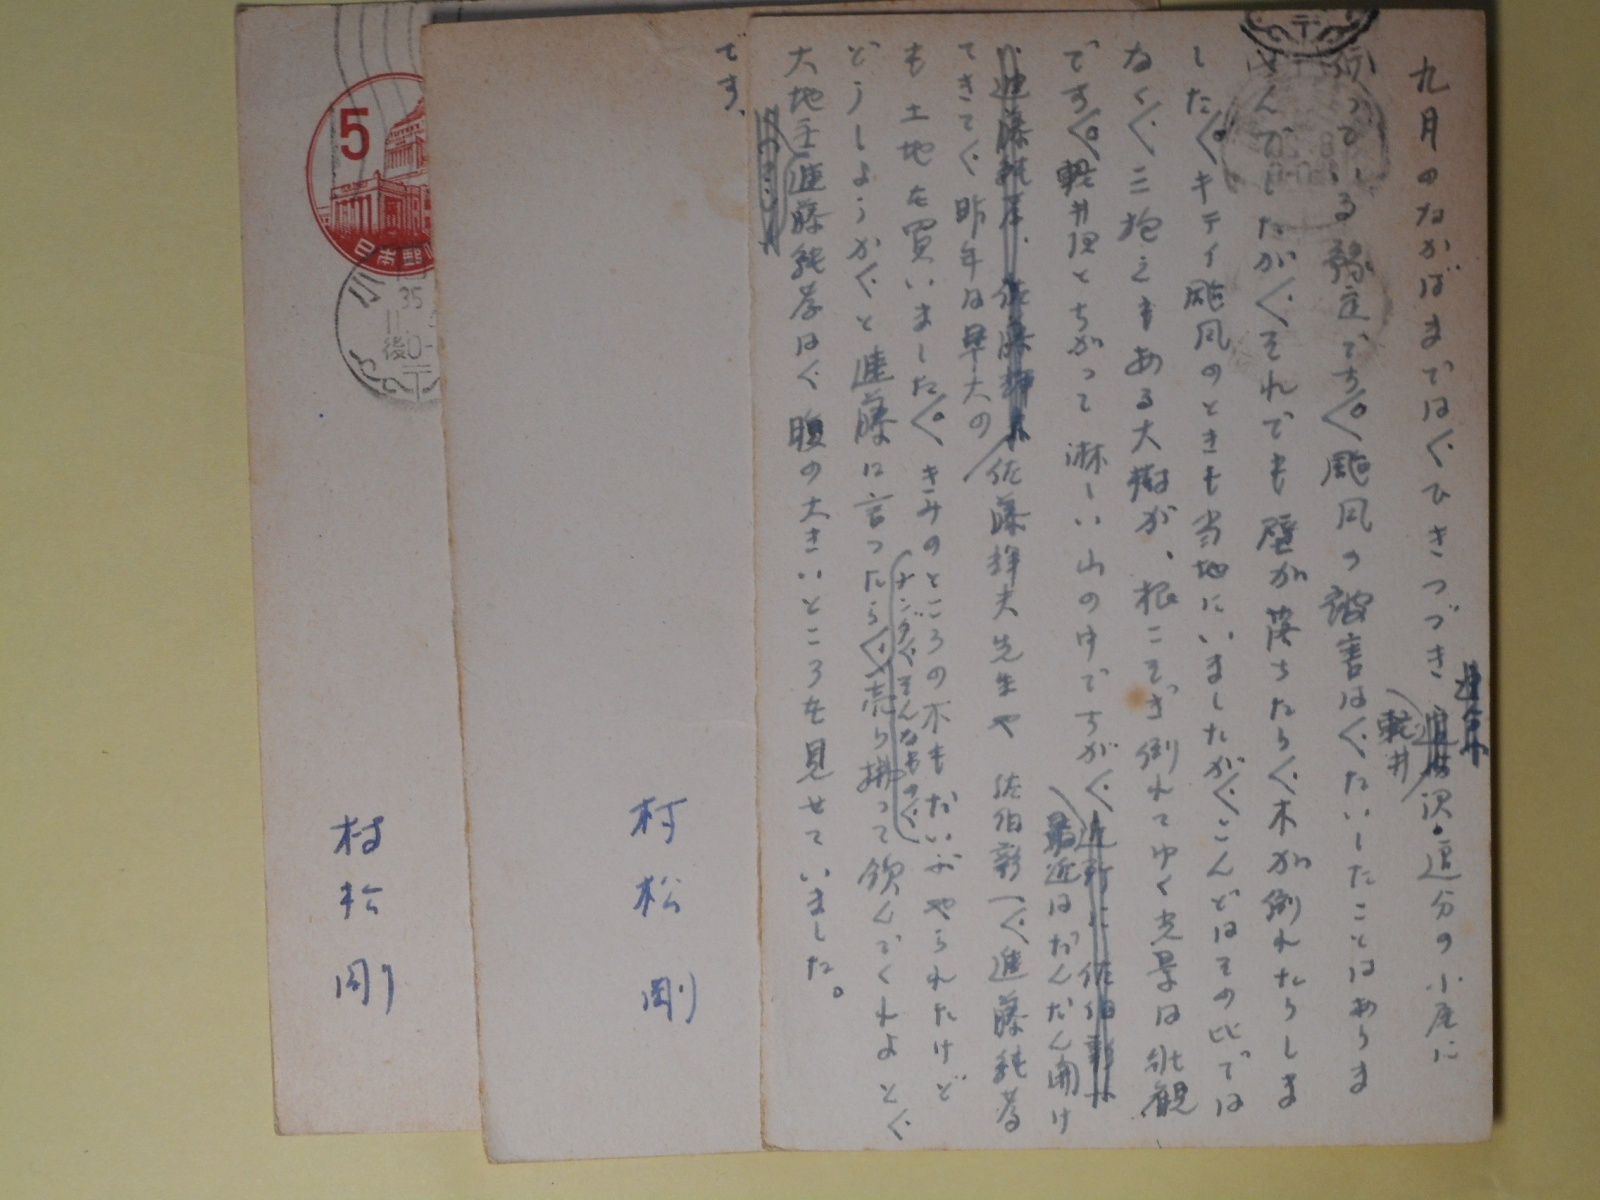 九月のなかばまでは、ひきつづき軽井沢・追分の小屋に
行っている予定です。颱風の被害は、たいしたことはありま
せんでしたが、それでも壁が落ちたり、木が倒れたりしま
した。キティ颱風のときも当地にいましたが、こんどはその比では
なく、三抱えもある大樹が、根こそぎ倒れてゆく光景は壮観
です。軽井沢とちがって淋しい山の中ですが、
最近はだんだん開け
てきて、昨年は早大の
佐藤輝夫先生や佐伯彰一、進藤純孝
も土地を買いました。きみのところの木もだいぶやられたけど
どうしようか、と進藤に言ったら、
ナンダ、そんなもの、
売り払って飲んでくれよと、
大地主進藤純孝は、腹の大きいところを見せていました。
です、
村松
剛
村松
剛
5
日本郵
小
35
11
後0-
〒
〒
8